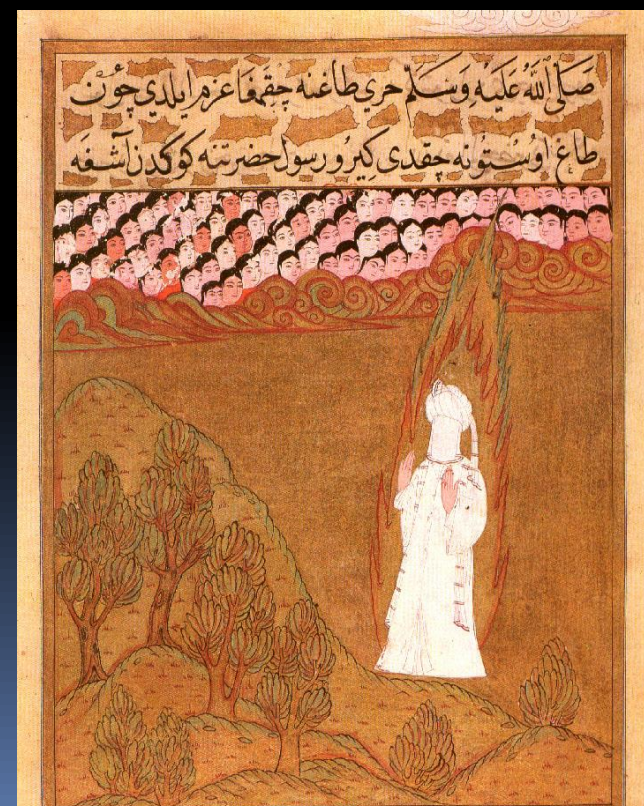 صَلَّى اللّٰهُ عَلَيْهِ وَسَلَّمْ حري طاغنه چقمغا عزم ايلدي چؤن
طاغ اوستونه چقدى كيرو رسول حضرتنه كوكدن آشغه